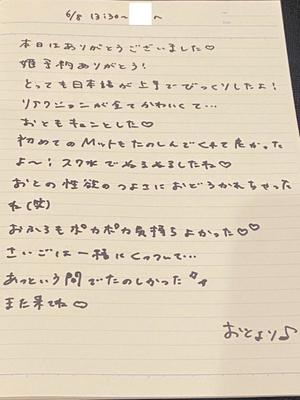 6/8 13:30〜 〜
本日はありがとうございました♡
姫予約ありがとう!
とっても日本語が上手でびっくりしたよ!
リアクションが全てかわいくて…
おともキュンとした♡
初めてのMットもたのしんでくれて良かった
よ〜!スク水でぬるぬるしたね♡
おとの性欲のつよさにおどろかれちゃった
ね(笑)
おふろもポカポカ気持ちよかった♡♡
さいごは一緒にくっついて…
あっという間でたのしかった
また来てね♡
おとより♪